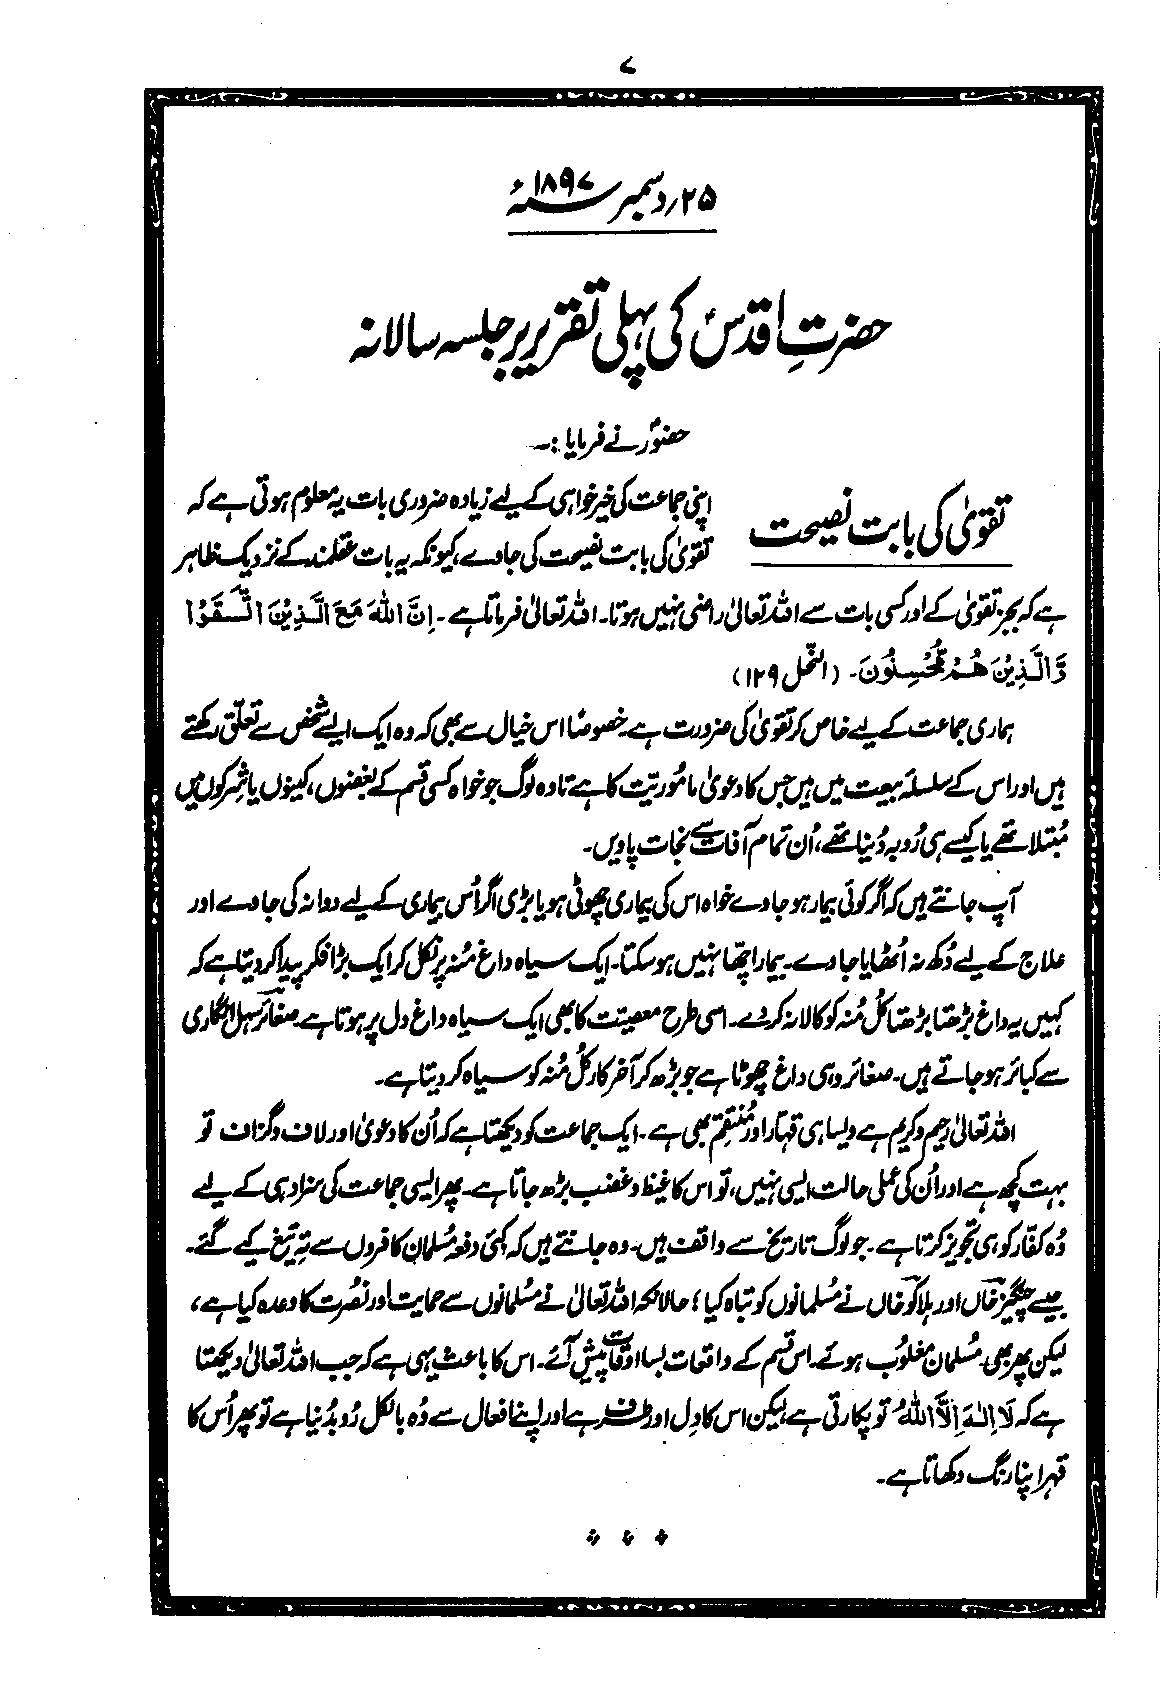 ۷
۲۵؍دسمبر ۱۸۹۷ء
حضرتِ اقدسؑ کی پہلی تقریر بر جلسہ سالانہ
حضورؑ نے فرمایا:۔
تقویٰ کی بابت نصیحت
اپنی جماعت کی خیرخواہی کے لیے زیادہ ضروری بات یہ معلوم ہوتی ہے کہ
تقویٰ کی بابت نصیحت کی جاوے، کیونکہ یہ بات عقلمند کے نزدیک ظاہر
ہے کہ بجز تقویٰ کے اور کسی بات سے اللہ تعالیٰ راضی نہیں ہوتا۔ اللہ تعالیٰ فرماتا ہے۔ اِنَّ اللّٰہَ مَعَ الَّذِیْنَ اتَّقَوْا
وَّالَّذِیْنَ ھُمْ مُّحْسِنُوْنَ۔ (النّحل ۱۲۹)
ہماری جماعت کے لیے خاص کر تقویٰ کی ضرورت ہے۔ خصوصًا اس خیال سے بھی کہ وہ ایک ایسے شخص سے تعلّق رکھتے
ہیں اور اس کے سلسلۂ بیعت میں ہیں جس کا دعویٰ ماموریّت کا ہے تا وہ لوگ جو خواہ کسی قسم کے بغضوں، کینوں یا شرکوں میں
مُبتلا تھے یا کیسے ہی رُو بہ دُنیا تھے، اُن تمام آفات سے نجات پاویں۔
آپ جانتے ہیں کہ اگر کوئی بیمار ہو جاوے خواہ اس کی بیماری چھوٹی ہو یا بڑی اگر اُس بیماری کے لیے دوا نہ کی جاوے اور
علاج کے لیے دُکھ نہ اُٹھایا جاوے۔ بیمار اچھا نہیں ہو سکتا۔ ایک سیاہ داغ مُنہ پر نکل کر ایک بڑا فکر پیدا کر دیتا ہے کہ
کہیں یہ داغ بڑھتا بڑھتا کُل مُنہ کو کالا نہ کر دے۔ اسی طرح معصیّت کا بھی ایک سیاہ داغ دل پر ہوتا ہے۔ صغائر سہل انگاری
سے کبائر ہو جاتے ہیں۔ صغائر وہی داغ چھوٹا ہے جو بڑھ کر آخرکار کُل مُنہ کو سیاہ کر دیتا ہے۔
اللہ تعالیٰ رحیم و کریم ہے ویسا ہی قہّار اور مُنتقم بھی ہے۔ ایک جماعت کو دیکھتا ہے کہ اُن کا دعویٰ اور لاف و گزاف تو
بہت کچھ ہے اور اُن کی عملی حالت ایسی نہیں، تو اس کا غیظ و غضب بڑھ جاتا ہے۔ پھر ایسی جماعت کی سزا دہی کے لیے
وُہ کفّار کو ہی تجویز کرتا ہے۔ جو لوگ تاریخ سے واقف ہیں۔ وہ جانتے ہیں کہ کئی دفعہ مُسلمان کافروں سے تہِ تیغ کیے گئے۔
جیسے چنگیز خاں اور ہلاکو خاں نے مُسلمانوں کو تباہ کیا؛ حالانکہ اللہ تعالیٰ نے مُسلمانوں سے حمایت اور نُصرت کا وعدہ کیا ہے،
لیکن پھر بھی مُسلمان مغلُوب ہوئے۔ اس قسم کے واقعات بسا اوقات پیش آئے۔ اس کا باعث یہی ہے کہ جب اللہ تعالیٰ دیکھتا
ہے کہ لَا اِلٰہَ اِلَّا اللّٰہُ تو پکارتی ہے، لیکن اس کا دِل اور طرف ہے اور اپنے افعال سے وُہ بالکل رُو بدُنیا ہے تو پھر اُس کا
قہر اپنا رنگ دکھاتا ہے۔